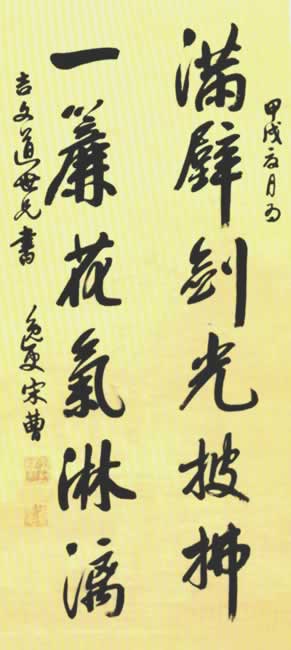 甲戌夏月為
滿壁劍光披拂
一簾花氣淋漓
吉文道世兄書
宋曹